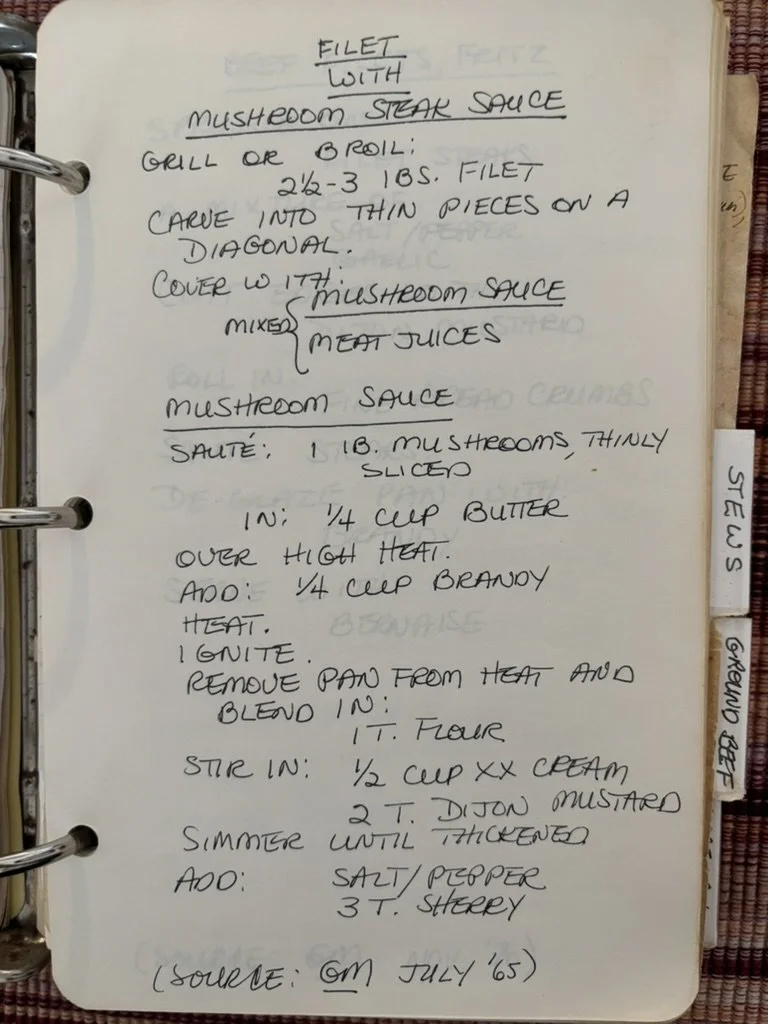 FILET
WITH
MUSHROOM STEAK SAUCE
GRILL OR BROIL:
2½-3 LBS. FILET
CARVE INTO THIN PIECES ON A
DIAGONAL.
COVER WITH:
MIXED { MUSHROOM SAUCE
MEAT JUICES
MUSHROOM SAUCE
SAUTÉ: 1 LB. MUSHROOMS, THINLY
SLICED
IN: ¼ CUP BUTTER
OVER HIGH HEAT.
ADD: ¼ CUP BRANDY
HEAT.
IGNITE.
REMOVE PAN FROM HEAT AND
BLEND IN:
1 T. FLOUR
STIR IN: ½ CUP XX CREAM
2 T. DIJON MUSTARD
SIMMER UNTIL THICKENED
ADD: SALT/PEPPER
3 T. SHERRY
(SOURCE: GM JULY '65)
STEWS
GROUND BEEF